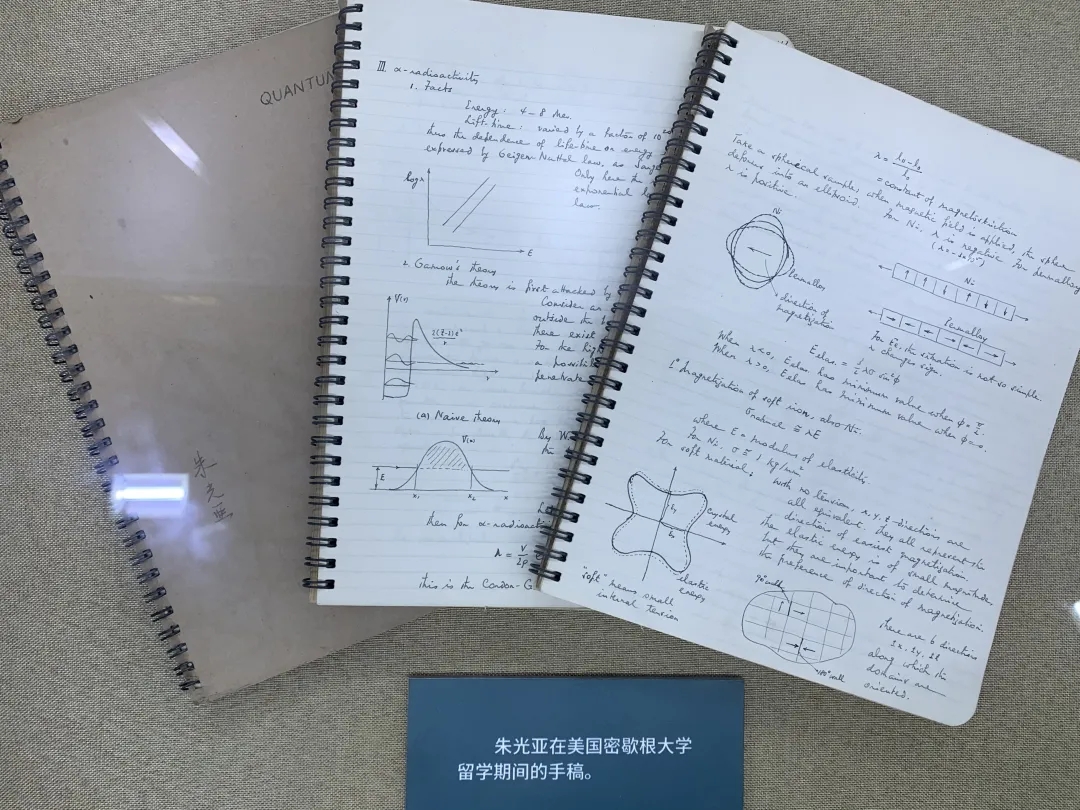 QUANTUM
朱光亚
III. α-radioactivity
1. Facts
Energy: 4–8 Mev.
Life-time: varied by a factor of 10
thus the dependence of life-time on energy
expressed by Geiger Nuttal law, as
Only here
exponential
law.
log λ
E
2. Gamow's theory
the theory is first attacked by
Consider an
outside the
there exist
For the high
a possible
penetrate
V(r)
2(Z-2)e²/r
r
(a) Naive theory
V(x)
E
x₁
x₂
x
then for α-radioacti
λ = V
this is the Condon-G
= constant of magnetostriction
Take a spherical sample, when magnetic field is applied, the sphere
deforms into an ellipsoid. For Ni, λ is negative. For permalloy
λ is positive.
Ni
Permalloy
direction of
magnetization
Ni
Permalloy
For Fe, the situation is not so simple.
λ changes sign.
Eelas = ½ λσ sin²φ
When λ<0, Eelas has minimum value when φ = π/2.
When λ>0, Eelas has minimum value when φ=0.
1° Magnetization of soft iron, also Ni.
σ ≅ λE
where E = modulus of elasticity.
For Ni, σ ≅ 1 kg/mm²
For soft material, with no tension, x, y, z-directions are
all equivalent. They all represent the
direction of easiest magnetization.
the elastic energy is of small magnitude
but they are important to determine
the preference of direction of magnetization.
Crystal
energy
elastic
energy
"soft" means small
internal tension
90° wall
180° wall
there are 6 directions
±x, ±y, ±z
along which the
domains are
oriented.
朱光亚在美国密歇根大学
留学期间的手稿。